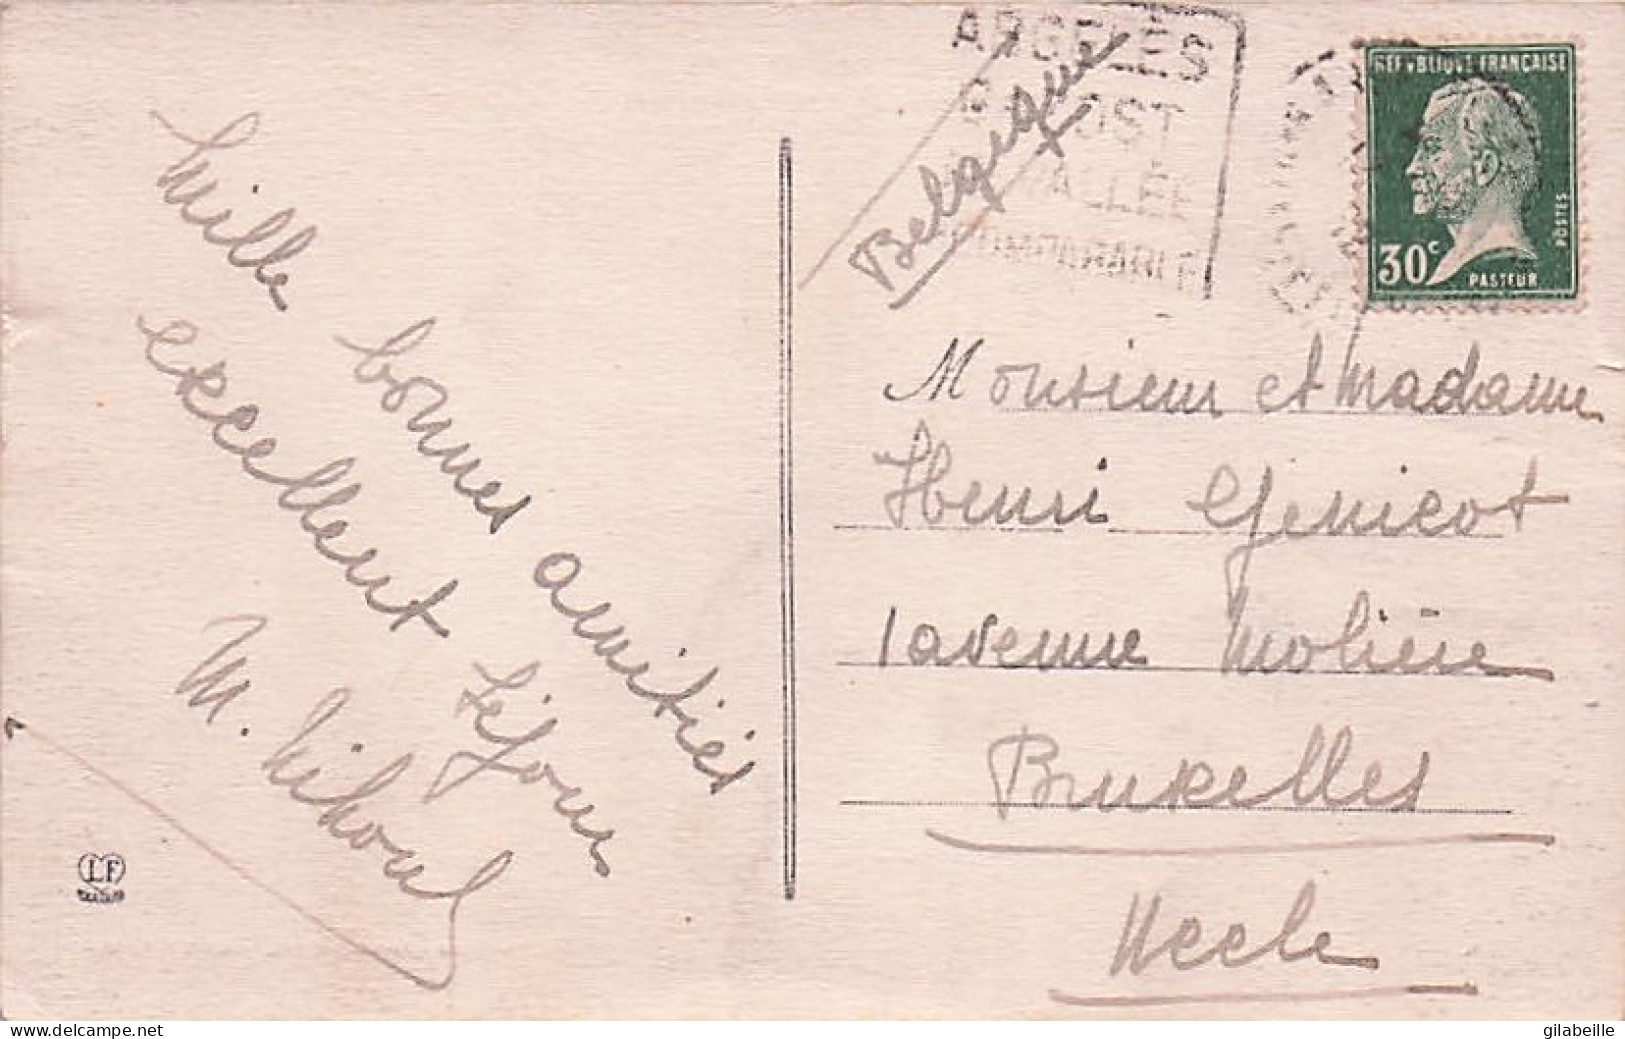 Mille bonnes amitiés
excellent séjour
ARGELÈS
VALLÉE
Belgique
REPVBLIQUE FRANÇAISE
30c
POSTES
PASTEUR
Monsieur et Madame
Henri Genicot
1 avenue Molière
Bruxelles
Uccle
LF
www.delcampe.net
gilabeille